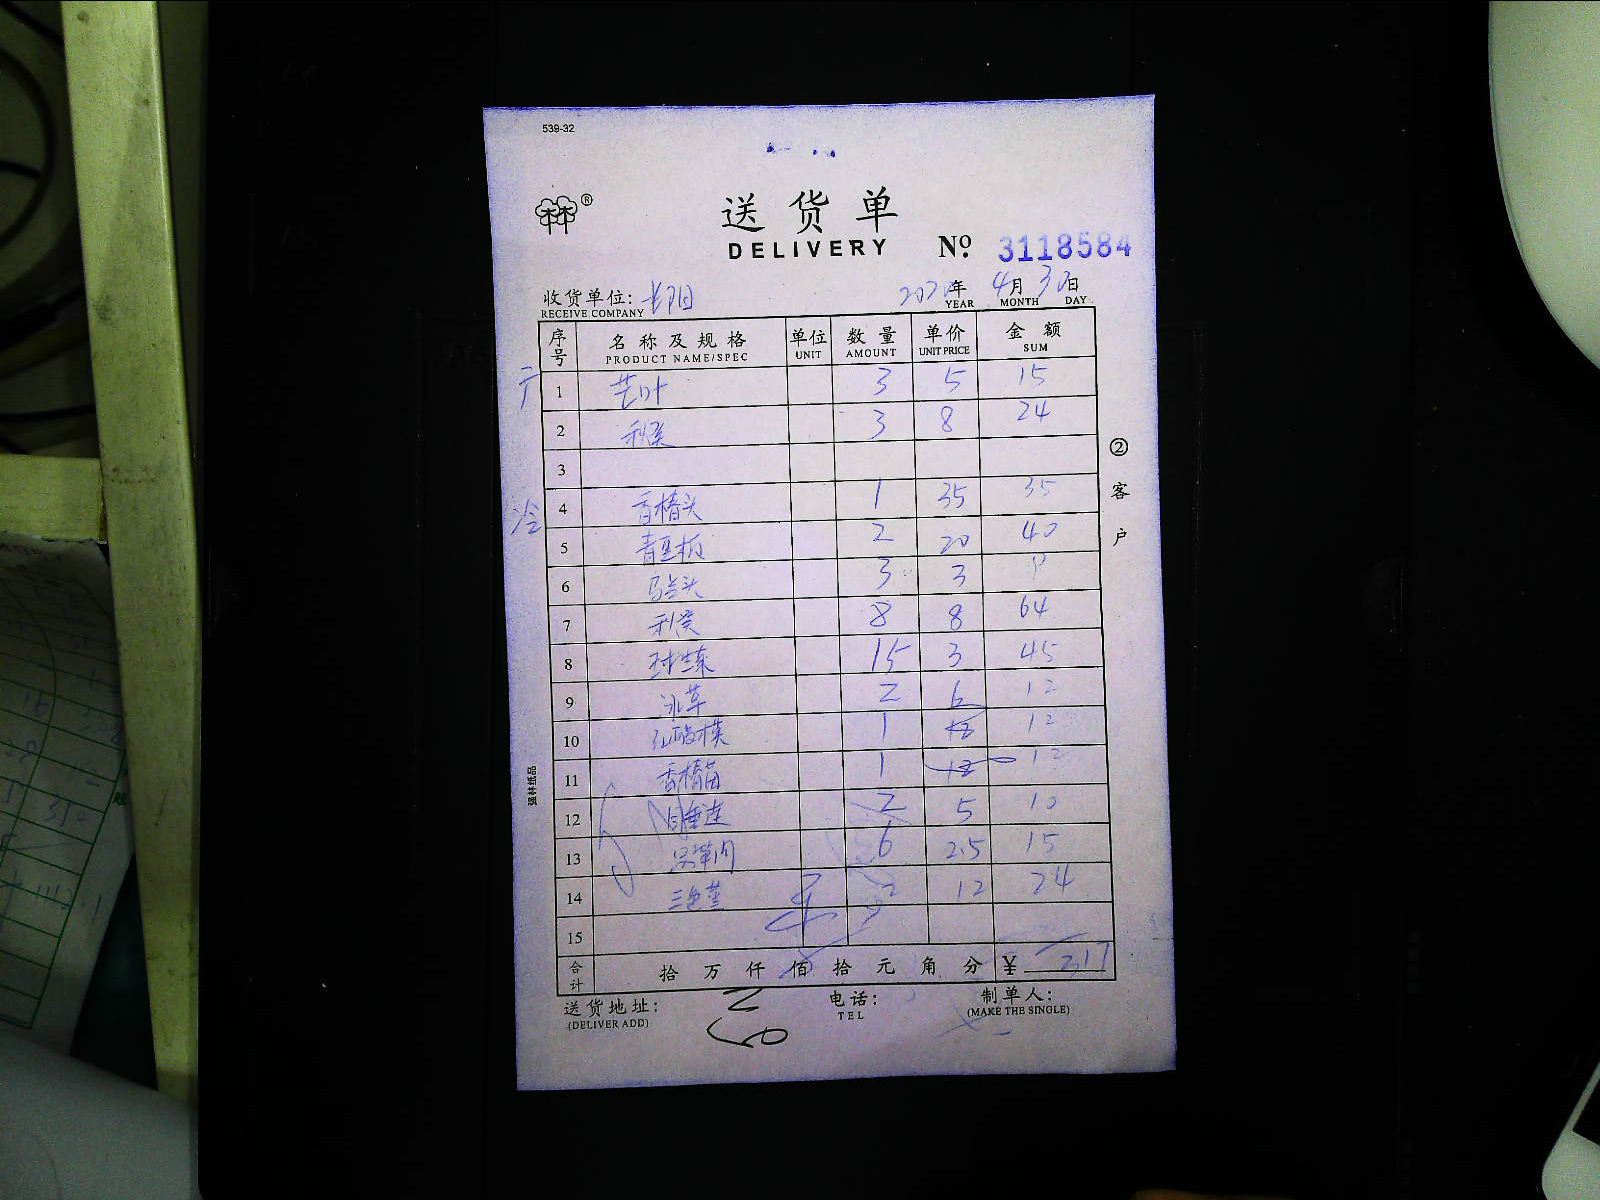 539-32
林林®
送货单
DELIVERY No. 3118584
收货单位: 长阳 202 年 4月 30日
RECEIVE COMPANY YEAR MONTH DAY
序号 名称及规格 单位 数量 单价 金额
PRODUCT NAME/SPEC UNIT AMOUNT UNIT PRICE SUM
1 芒叶 3 5 15
2 3 8 24
3
冷 4 香椿头 1 35 35
5 青豆板 2 20 40
6 马兰头 3 3 9
7 8 8 64
8 球生菜 15 3 45
9 冰草 2 6 12
10 红酸模 1 12 12
11 香椿苗 1 12 12
12 2 5 10
13 6 2.5 15
14 三色堇 2 12 24
15
合计 拾 万 仟 佰 拾 元 角 分 ¥ 317
送货地址: 电话: 制单人:
(DELIVER ADD) TEL (MAKE THE SINGLE)
②客户
强林纸品